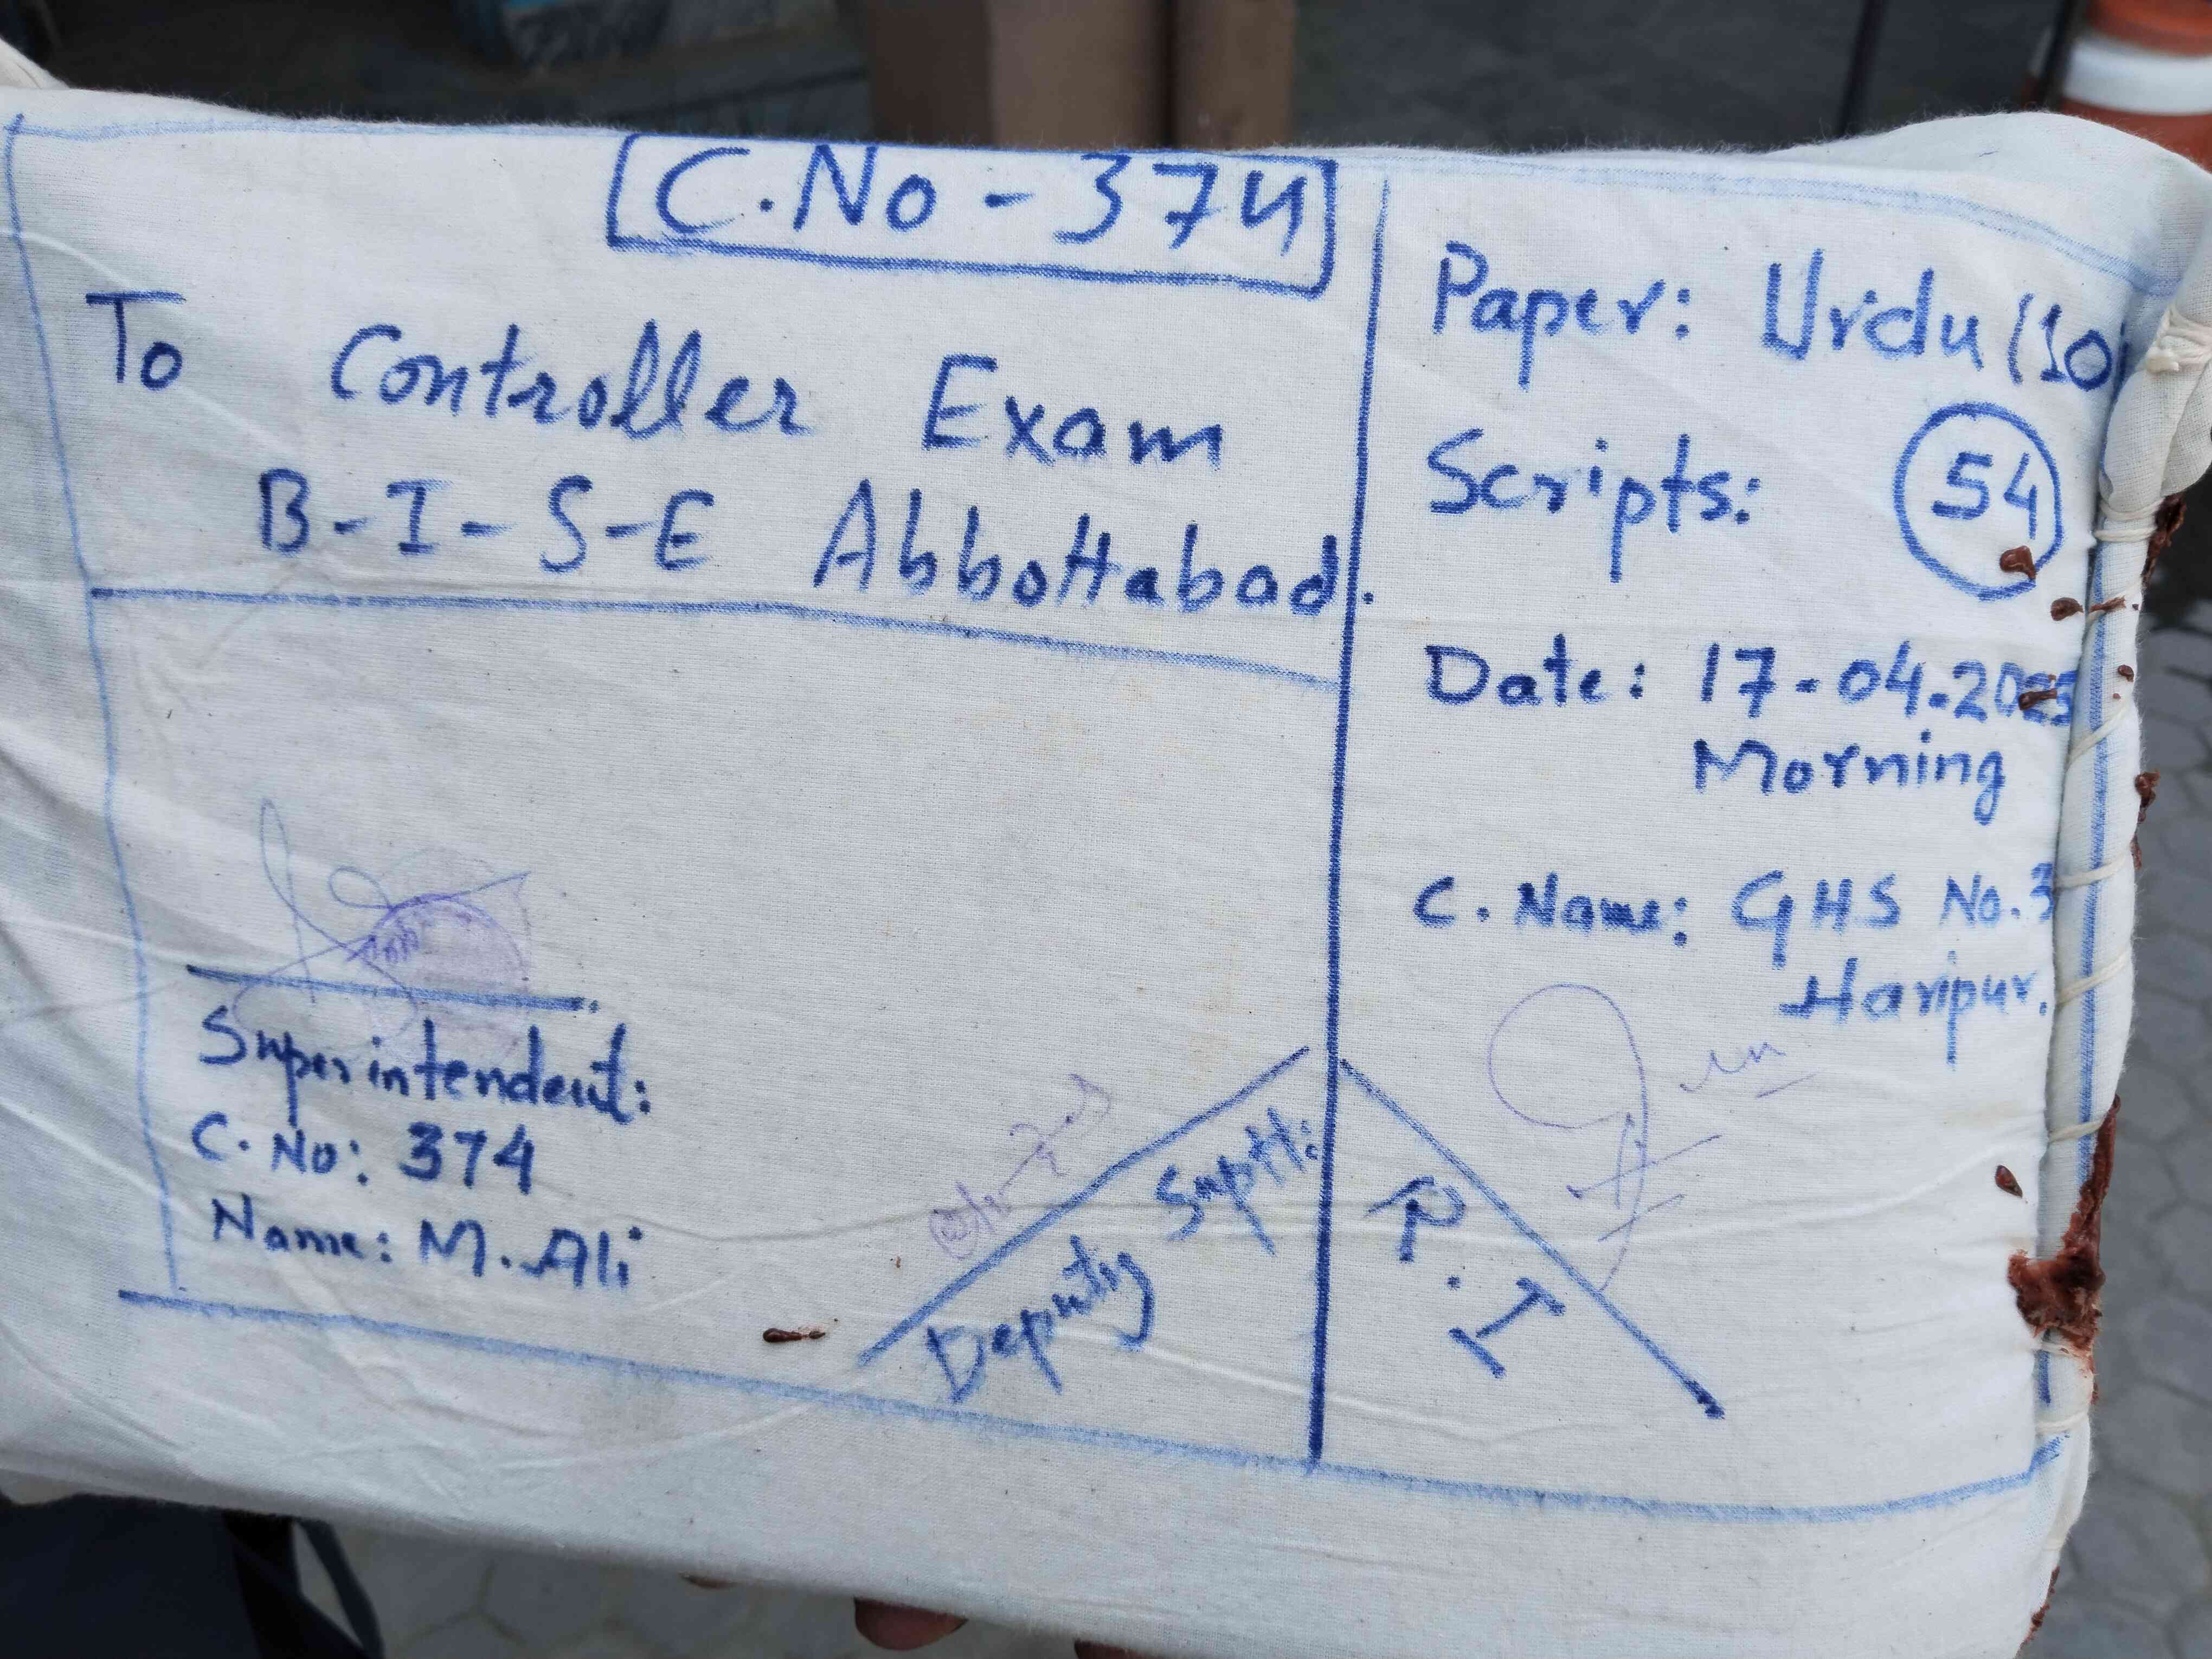 C.No - 374
To Controller Exam
B-I-S-E Abbottabad.
Paper: Urdu (10
Scripts: 54
Date: 17-04-2025
Morning
C. Name: GHS No. 3
Haripur.
Superintendent:
C. No: 374
Name: M. Ali
Deputy Suptt:
R.I